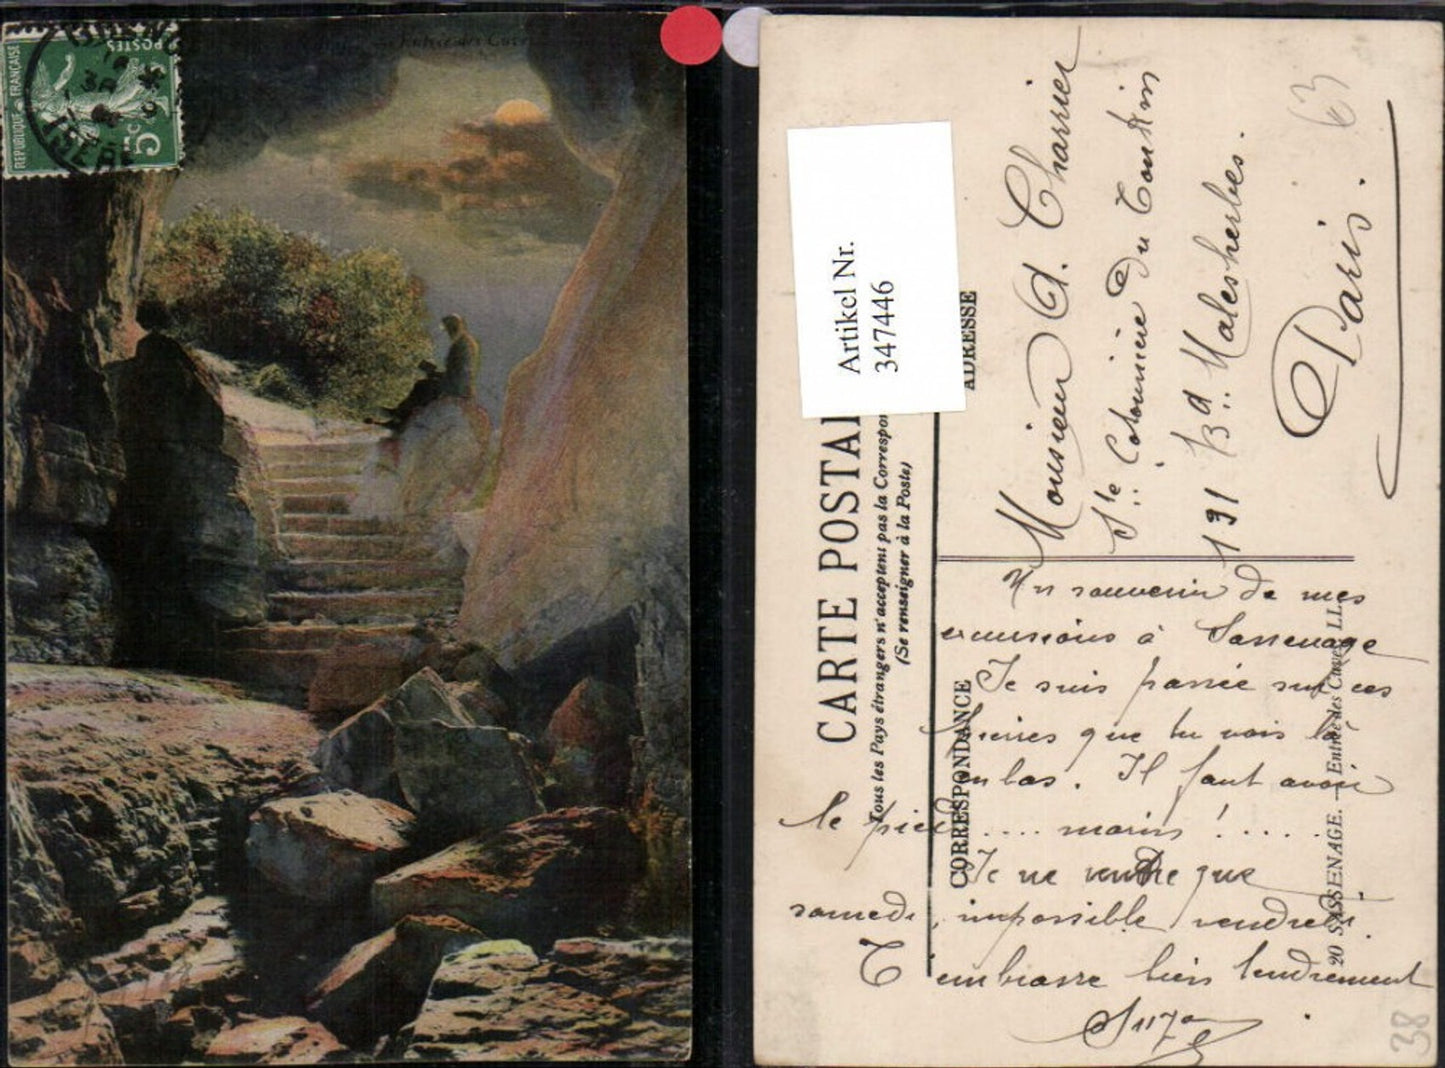 RÉPUBLIQUE FRANÇAISE
POSTES
5c
ISÈRE
Entrée des Cuves
Artikel Nr.
347446
CARTE POSTAL
Tous les Pays étrangers n'acceptent pas la Correspon
(Se renseigner à la Poste)
ADRESSE
CORRESPONDANCE
Monsieur A. Charrier
Sté Cotonnière du Tonkin
191 Bd Malesherbes.
Paris.
63
Un souvenir de mes
excursions à Sassenage
Je suis passée sur ces
pierres que tu vois là
en bas. Il faut avoir
le pied .... marin ! .....
Je ne rentre que
samedi, impossible vendredi.
T'embrasse bien tendrement
20 SASSENAGE. — Entrée des Cuves. LL.
38